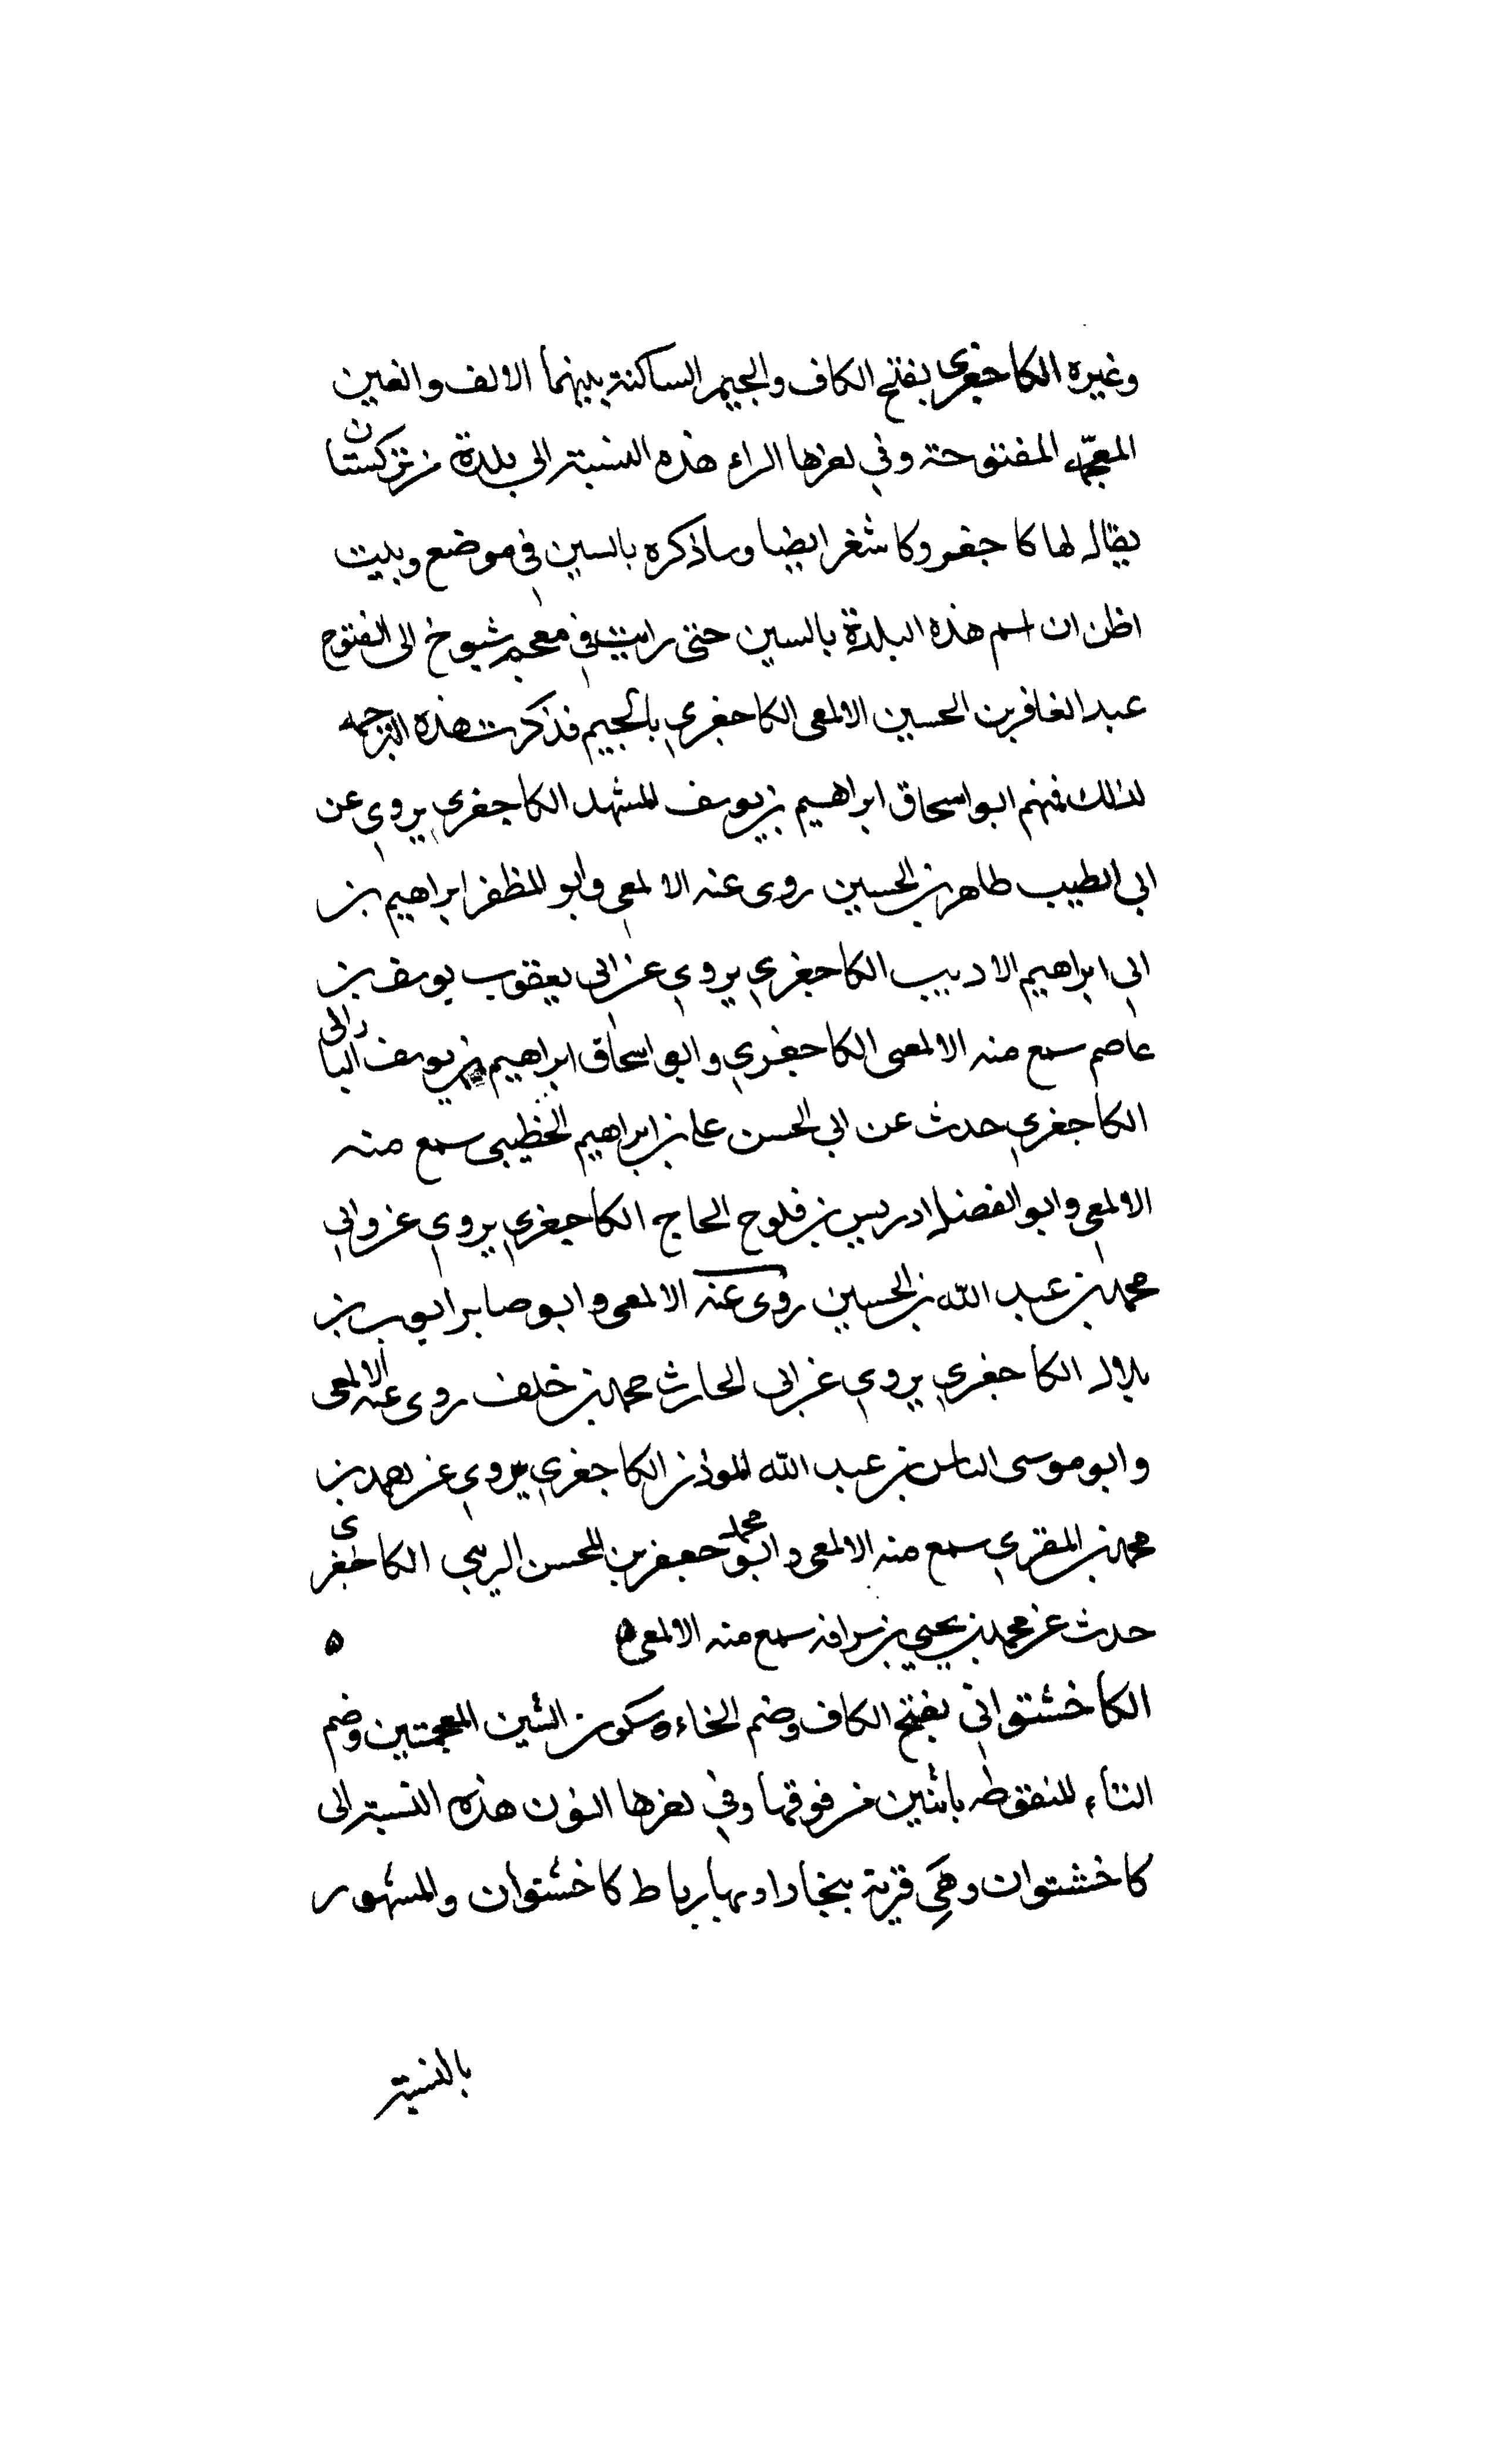 وغيره الكاجغري بفتح الكاف والجيم الساكنة بينهما الالف والغين
المعجمه المفتوحة وفي اخرها الراء هذه النسبة الى بلدة من تركستان
يقال لها كاجغر وكاشغر ايضا وساذكره بالسين في موضع وبليت
اظن ان اسم هذه البلدة بالسين حتى رايت في معجم شيوخ الى الفتوح
عبد الغافر بن الحسين الالمعى الكاجغري بالجيم فذكرت هذه الترجمه
لذلك فمنهم ابو اسحاق ابراهيم بن يوسف المشهد الكاجغري يروي عن
ابي الطيب طاهر بن الحسين روى عنه الالمعي وابو المظفر ابراهيم بن
ابي ابراهيم الاديب الكاجغري يروي عن ابي يعقوب يوسف بن
عاصم سمع منه الالمعى الكاجغري وابو اسحاق ابراهيم بن يوسف
الكاجغري حدث عن ابي الحسن على بن ابراهيم الخطيبى سمع منه
الالمعي وابو الفضل ادريس بن فلوح الحاج الكاجغري يروي عن
محمد بن عبد الله بن الحسين روى عنه الالمعى وابو صابر ايوب بن
بلال الكاجغري يروي عن ابى الحارث محمد بن خلف روى عنه الالمعى
وابو موسى الناس بن عبد الله المؤذن الكاجغري يروي عن بن
محمد بن المقري سمع منه الالمعى وابو محمد جعفر بن الحسن الكاجغرى
حدث عن محمد بن يحيي بن سراقه سمع منه الالمعى ٥ ٥
الكاخشتواني بفتح الكاف وضم الخاء وسكون الشين المعجمتين وضم
التاء المنقوطه باثنين من فوقها وفي اخرها النون هذه النسبة الى
كاخشتوان وهي قرية ببخارا وبها رباط كاخشتوان والمشهور
بالنسبة